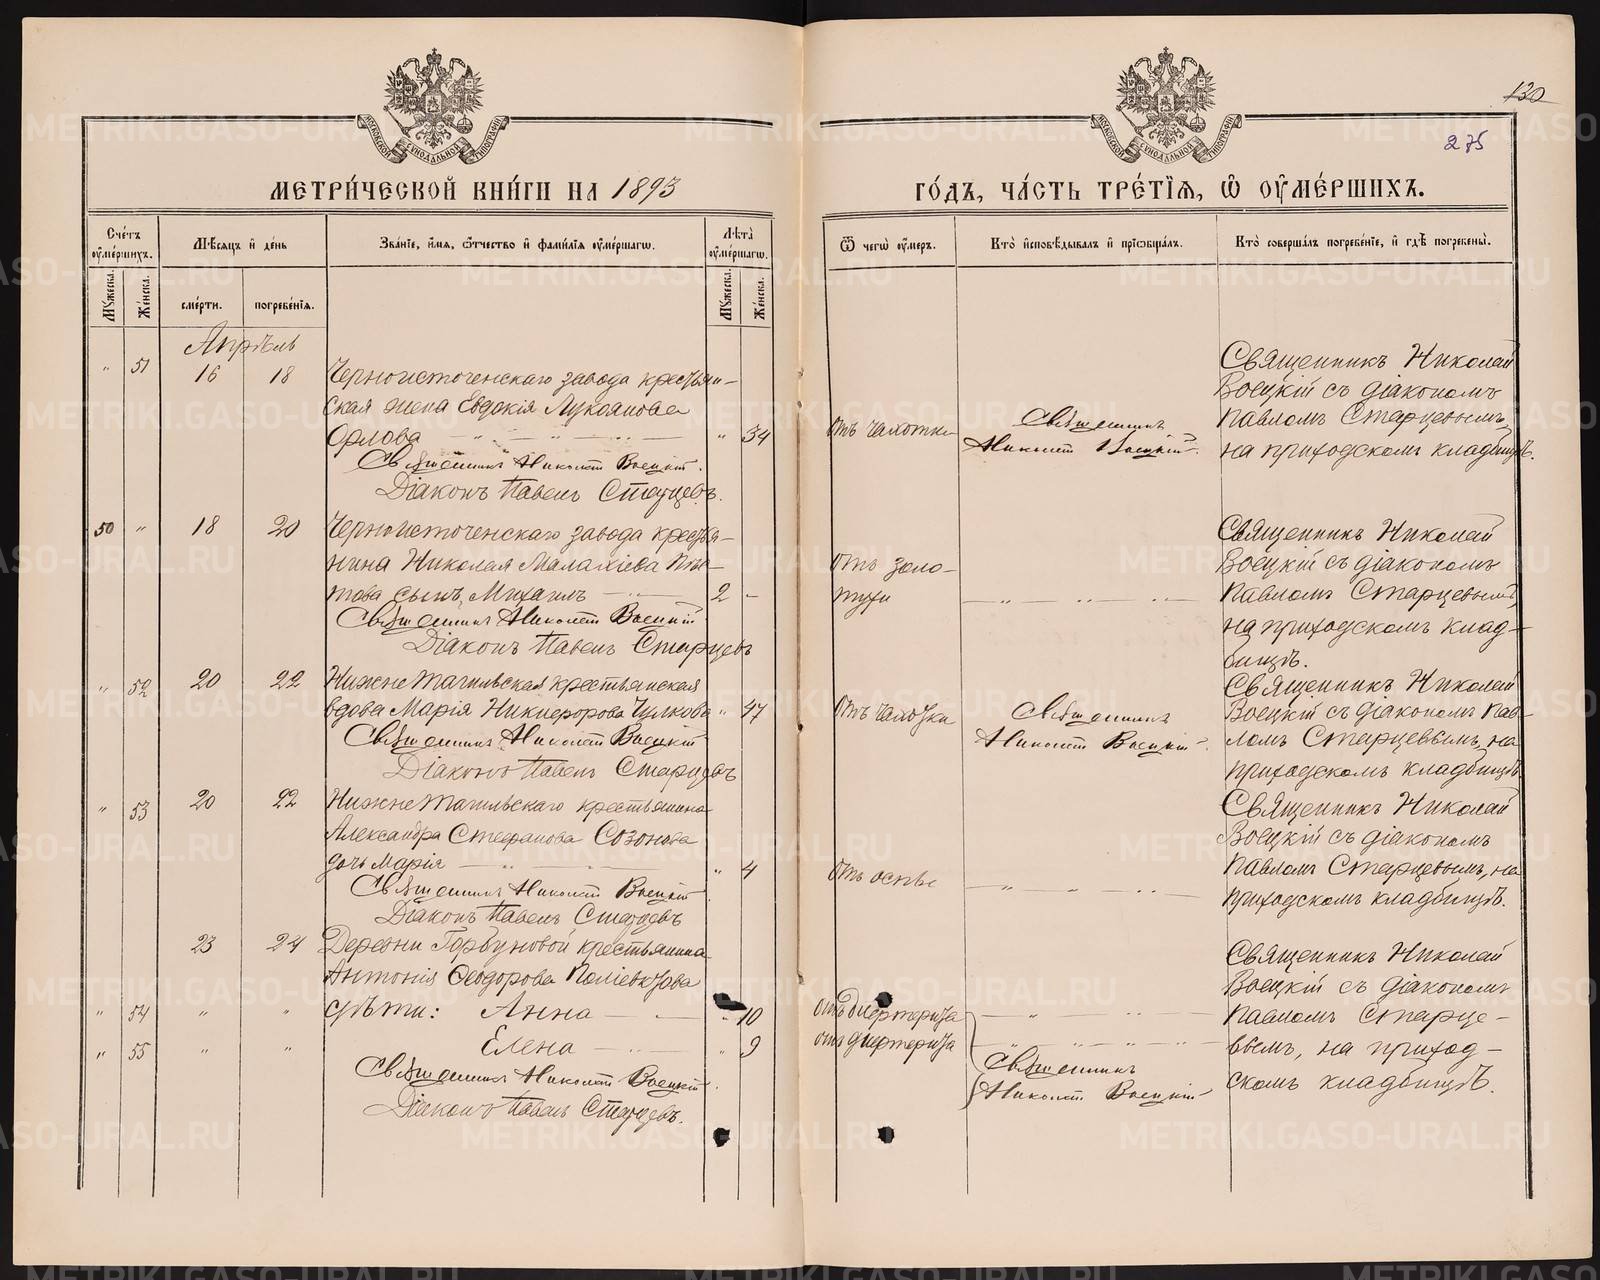 130
275
МЕТРИ́ЧЕСКОЙ КНИ́ГИ НА 1893
ГО́ДЪ, ЧА́СТЬ ТРЕ́ТІЯ, Ѡ ОУМЕ́РШИХЪ.
Сче́тъ оуме́ршихъ.
Мꙋжеска.
Же́нска.
Мѣсяцъ и де́нь
сме́рти.
погребе́нія.
Зва́ніе, и́мя, ѿтчество и фами́лія оуме́ршагѡ.
Лѣта̀ оуме́ршагѡ.
Мꙋжеска.
Же́нска.
Ѿ чегѡ̀ оу́меръ.
Кто̀ исповѣдывалъ и прїѡбща́лъ.
Кто̀ соверша́лъ погребе́ніе, и гдѣ̀ погребены̀.
Апрѣль
" 51 16 18 Черноисточенскаго завода крестьян-
ская жена Евдокія Лукоянова
Орлова " 34
Священникъ Николай Воецкій.
Діаконъ Павелъ Старцевъ.
отъ чахотки
Священникъ
Николай Воецкій.
Священникъ Николай
Воецкій съ діакономъ
Павломъ Старцевымъ,
на приходскомъ кладбищѣ.
50 " 18 20 Черноисточенскаго завода крестья-
нина Николая Малахіева
това сынъ Михаилъ 2 -
Священникъ Николай Воецкій
Діаконъ Павелъ Старцевъ
отъ золо-
тухи
Священникъ Николай
Воецкій съ діакономъ
Павломъ Старцевымъ,
на приходскомъ клад-
бищѣ.
" 52 20 22 Нижне Тагильская крестьянская
вдова Марія Никифорова Чулкова " 47
Священникъ Николай Воецкій
Діаконъ Павелъ Старцевъ
отъ чахотки
Священникъ
Николай Воецкій.
Священникъ Николай
Воецкій съ діакономъ Пав-
ломъ Старцевымъ, на
приходскомъ кладбищѣ
" 53 20 22 Нижне Тагильскаго крестьянина
Александра Стефанова Созонова
дочь Марія " 4
Священникъ Николай Воецкій
Діаконъ Павелъ Старцевъ
отъ оспы
Священникъ Николай
Воецкій съ діакономъ
Павломъ Старцевымъ, на
приходскомъ кладбищѣ.
23 24 Деревни Горбуновой крестьянина
Антонія Ѳеодорова Поліевктова
" 54 " " дѣти: Анна " 10
" 55 " " Елена " 9
Священникъ Николай Воецкій.
Діаконъ Павелъ Старцевъ.
отъ дифтерита
отъ дифтерита
Священникъ
Николай Воецкій
Священникъ Николай
Воецкій съ діакономъ
Павломъ Старце-
вымъ, на приход-
скомъ кладбищѣ.
METRIKI.GASO-URAL.RU